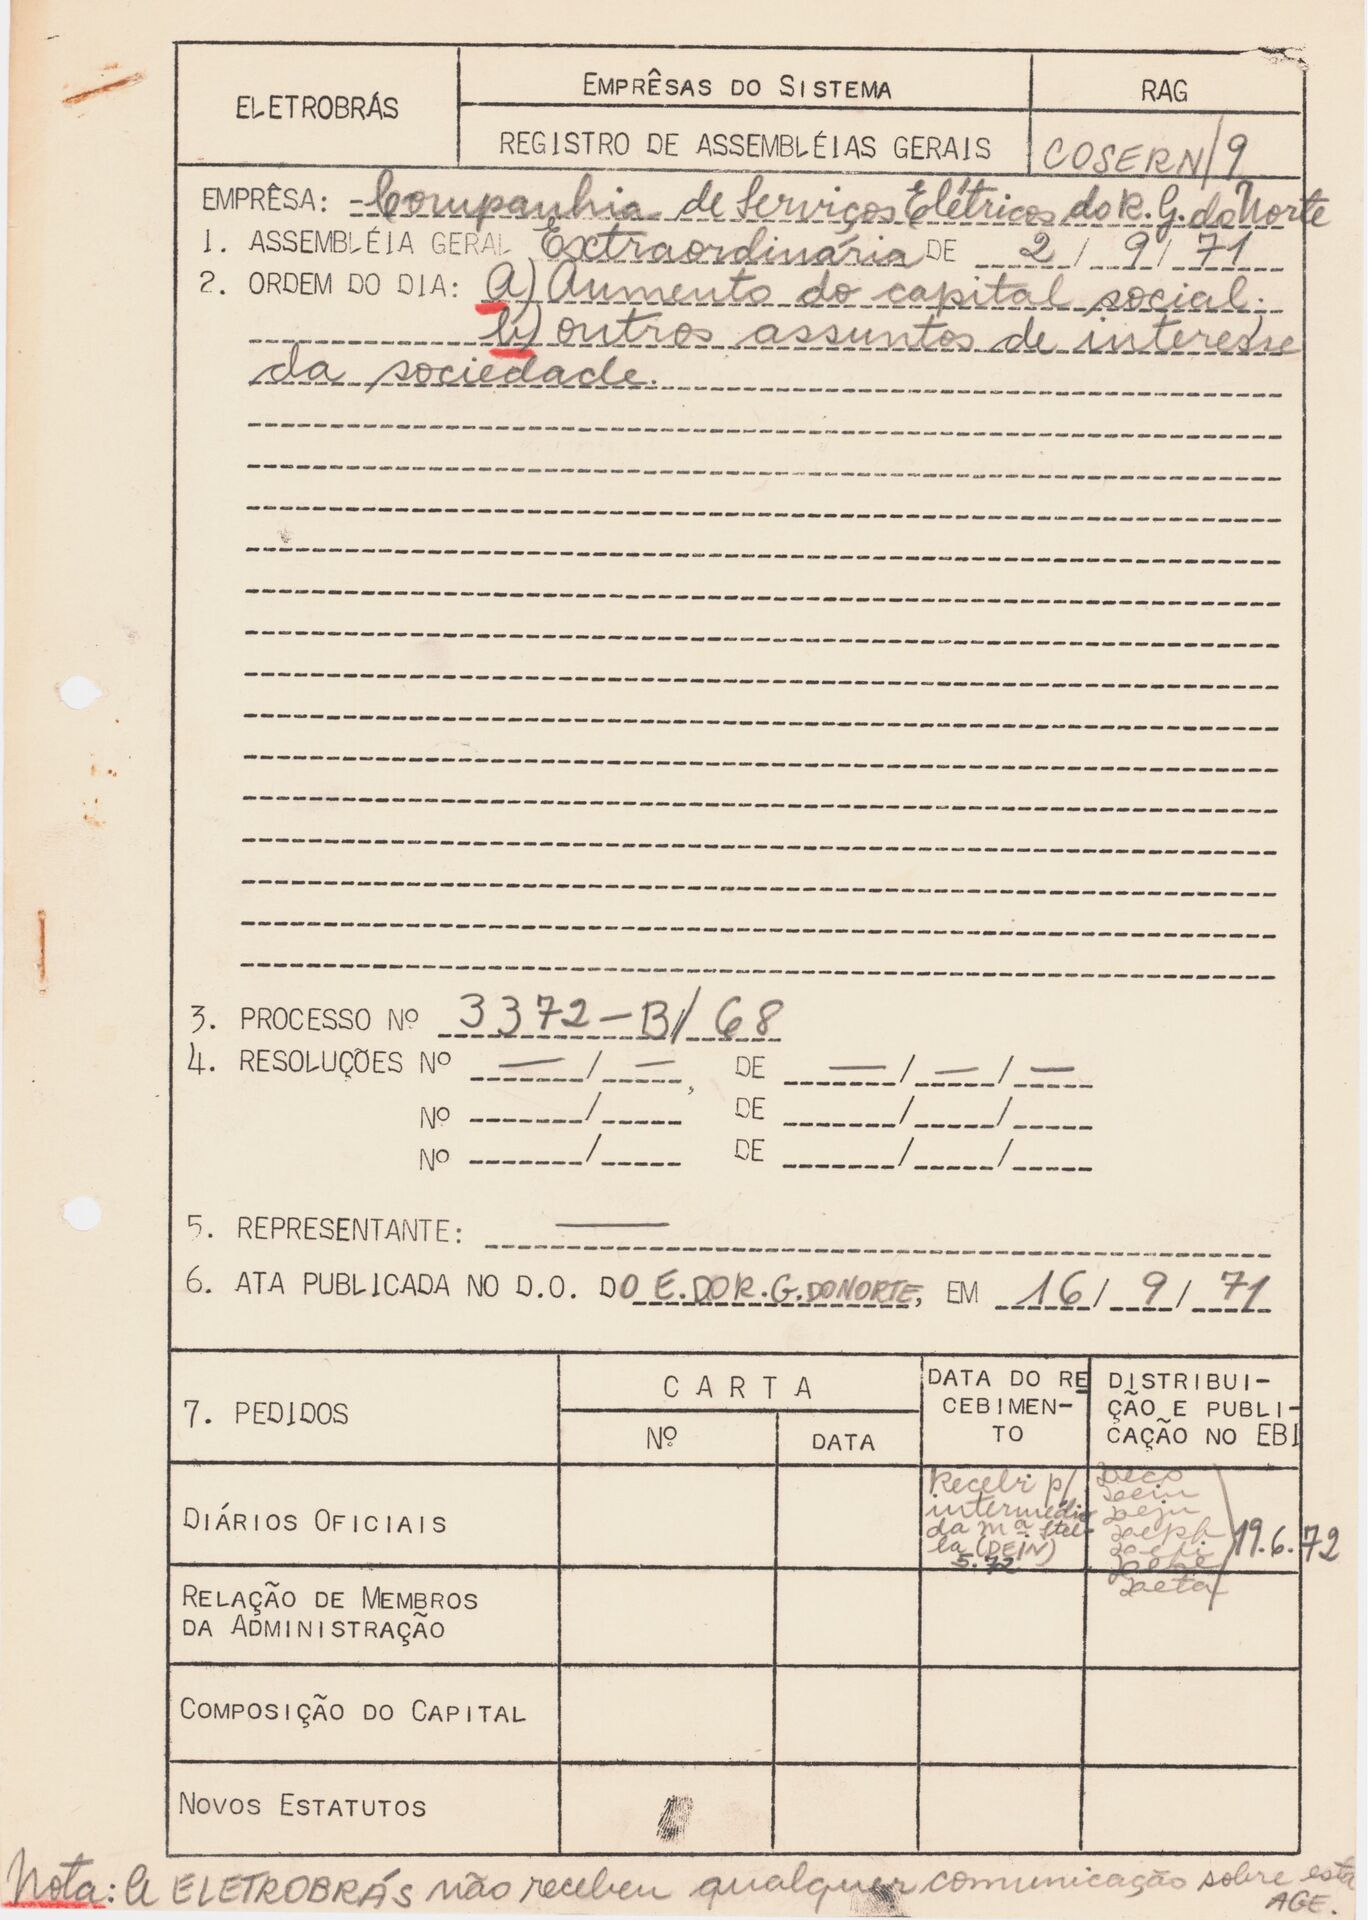 ELETROBRÁS
EMPRÊSAS DO SISTEMA
RAG
REGISTRO DE ASSEMBLÉIAS GERAIS
COSERN/9
EMPRÊSA: Companhia de Serviços Elétricos do R. G. do Norte
1. ASSEMBLÉIA GERAL Extraordinária DE 2 / 9 / 71
2. ORDEM DO DIA: a) Aumento do capital social.
b) outros assuntos de interesse
da sociedade.
3. PROCESSO Nº 3372-B/68
4. RESOLUÇÕES Nº — / —, DE — / — / —
Nº / DE / /
Nº / DE / /
5. REPRESENTANTE: —
6. ATA PUBLICADA NO D.O. DO E. DO R. G. DO NORTE, EM 16 / 9 / 71
7. PEDIDOS
CARTA
Nº
DATA
DATA DO RE
CEBIMEN-
TO
DISTRIBUI-
ÇÃO E PUBLI-
CAÇÃO NO EBI
DIÁRIOS OFICIAIS
Recebi p/
intermédio
da Mª Stel-
la (DEIN)
5.72
19.6.72
RELAÇÃO DE MEMBROS
DA ADMINISTRAÇÃO
COMPOSIÇÃO DO CAPITAL
NOVOS ESTATUTOS
Nota: A ELETROBRÁS não recebeu qualquer comunicação sobre esta
AGE.